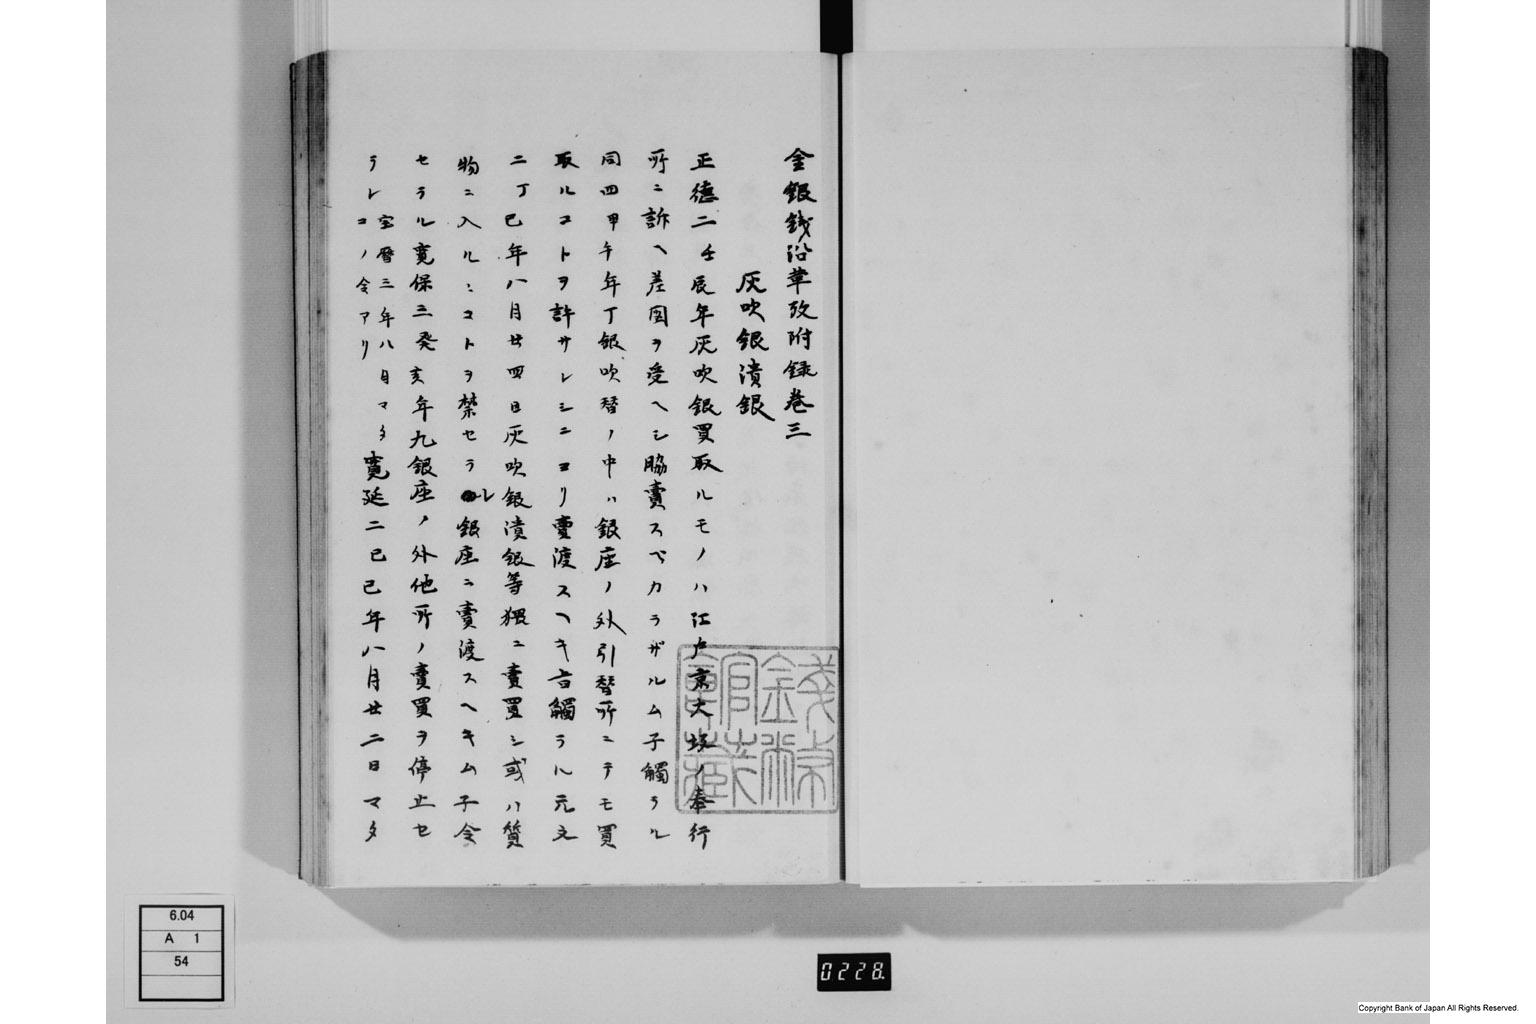 金銀銭沿革攷附録巻三
灰吹銀潰銀
正徳二壬辰年灰吹銀買取ルモノハ江戸京大坂ノ奉行
所ニ訴ヘ差図ヲ受ヘシ脇賣スベカラザルム子觸ラル
同四甲午年丁銀吹替ノ中ハ銀座ノ外引替所ニテモ買
取ルコトヲ許サレシニヨリ賣渡スヘキ旨觸ラル元文
二丁巳年八月廿四日灰吹銀潰銀等猥ニ賣買シ或ハ質
物ニ入ルヽコトヲ禁セラレ銀座ニ賣渡スヘキム子令
セラル寛保三癸亥年九銀座ノ外他所ノ賣買ヲ停止セ
ラレ宝暦三年八月マタコノ令アリ寛延二己巳年八月廿二日マタ
錢幣館藏
6.04
A 1
54
0228.
Copyright Bank of Japan All Rights Reserved.